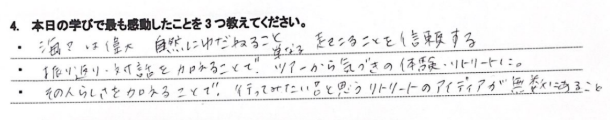 4. 本日の学びで最も感動したことを3つ教えてください。
・ 海では偉大 自然にゆだねること 単なる をすることを信頼する
・ 振り返り・対話を加えることで、ツアーから気づきの体験・リトリートに。
・ その人らしさを加えることで、行ってみたい!と思うリトリートのアイディアが無数にあること